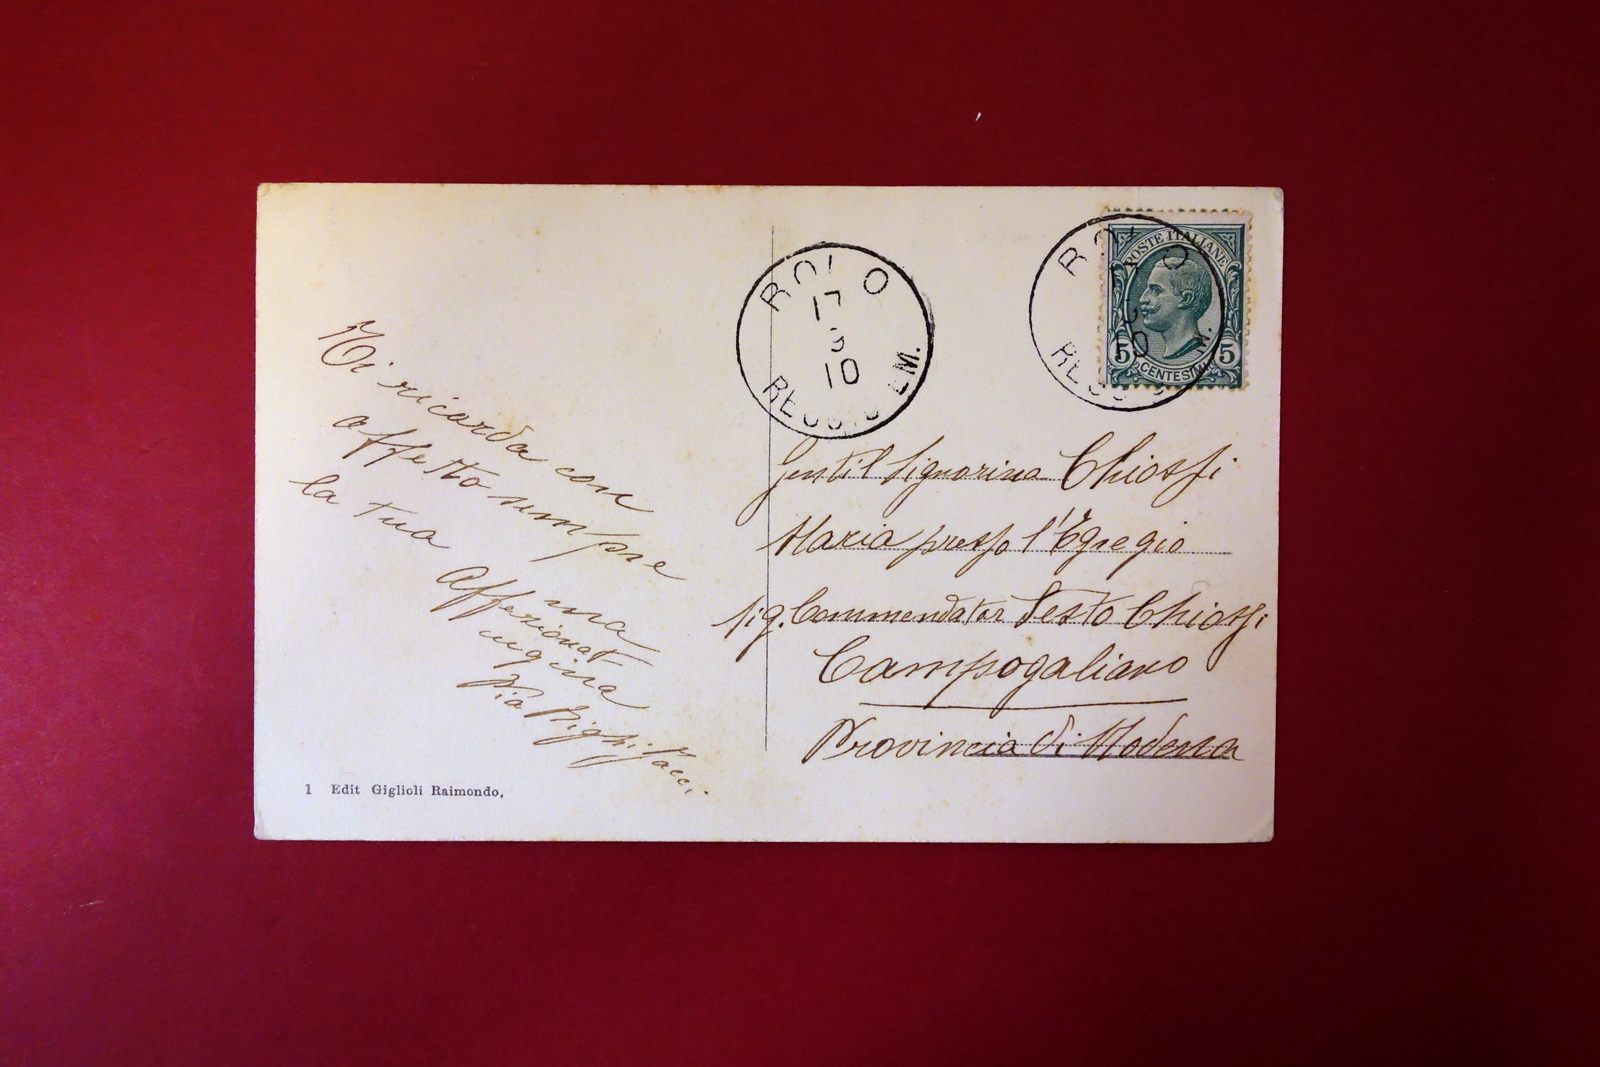 Ti ricorda con
affetto sempre
la tua
affezionat ma
cugina
Pia Righi
1 Edit Giglioli Raimondo.
ROLO
17
3
10
REGGIO EM.
ROLO
17
3
10
REGGIO EM.
POSTE ITALIANE
5 CENTESIMI 5
Gentil Signorina Chiossi
Maria presso l'Egregio
Sig. Commendator Sesto Chiossi
Campogaliano
Provincia di Modena